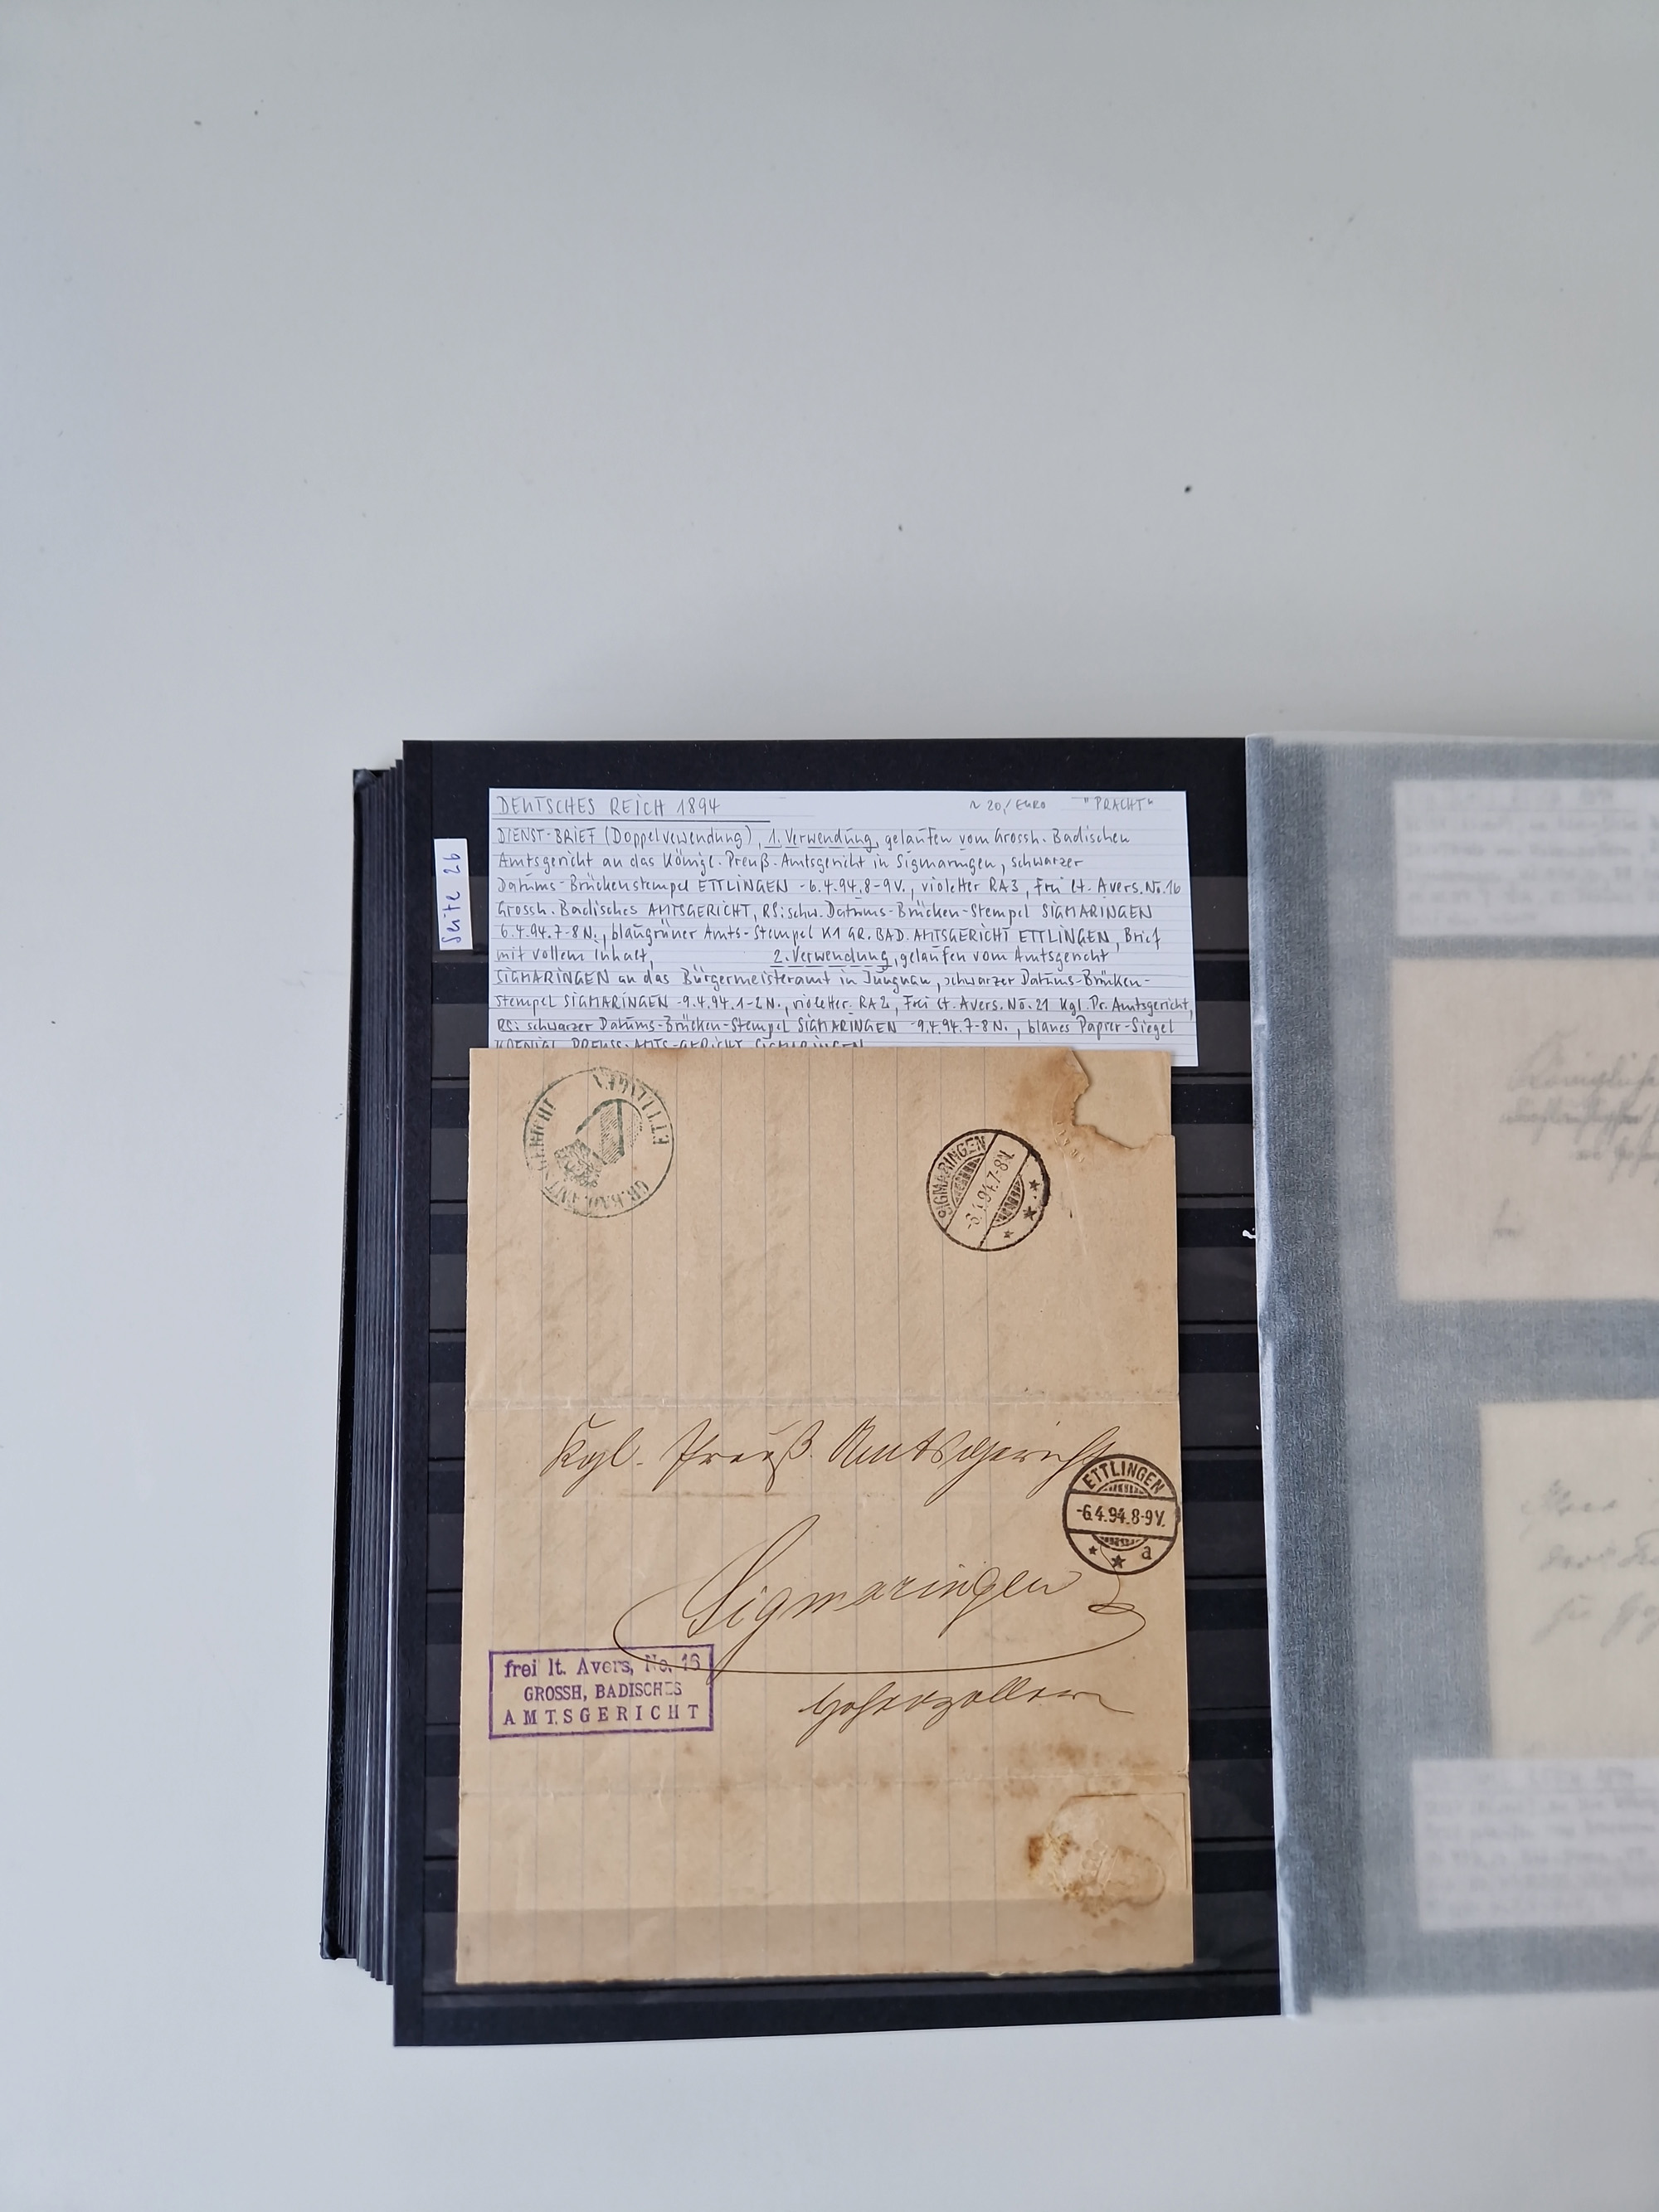 Seite 26
DEUTSCHES REICH 1894 ~ 20,- EURO "PRACHT"
DIENST-BRIEF (Doppelverwendung), 1. Verwendung, gelaufen vom Grossh. Badischen
Amtsgericht an das Königl. Preuß. Amtsgericht in Sigmaringen, schwarzer
Datums-Brückenstempel ETTLINGEN -6.4.94.8-9V., violetter RA3, Frei lt. Avers. No.16
Grossh. Badisches AMTSGERICHT, RS: schw. Datums-Brücken-Stempel SIGMARINGEN
6.4.94.7-8N., blaugrüner Amts-Stempel K1 GR. BAD. AMTSGERICHT ETTLINGEN, Brief
mit vollem Inhalt, 2. Verwendung, gelaufen vom Amtsgericht
SIGMARINGEN an das Bürgermeisteramt in Jungnau, schwarzer Datums-Brücken-
Stempel SIGMARINGEN -9.4.94.1-2N., violetter RA2, Frei lt. Avers. No. 21 Kgl. Pr. Amtsgericht,
RS: schwarzer Datums-Brücken-Stempel SIGMARINGEN -9.4.94.7-8N., blaues Papier-Siegel
KOENIGL. PREUSS. AMTS-GERICHT SIGMARINGEN
GR. BAD. AMTSGERICHT ETTLINGEN
SIGMARINGEN
-6.4.94.7-8N.
Kgl. Preuß. Amtsgericht
ETTLINGEN
-6.4.94.8-9V.
a
Sigmaringen
frei lt. Avers, No. 16
GROSSH, BADISCHES
AMTSGERICHT
Hohenzollern